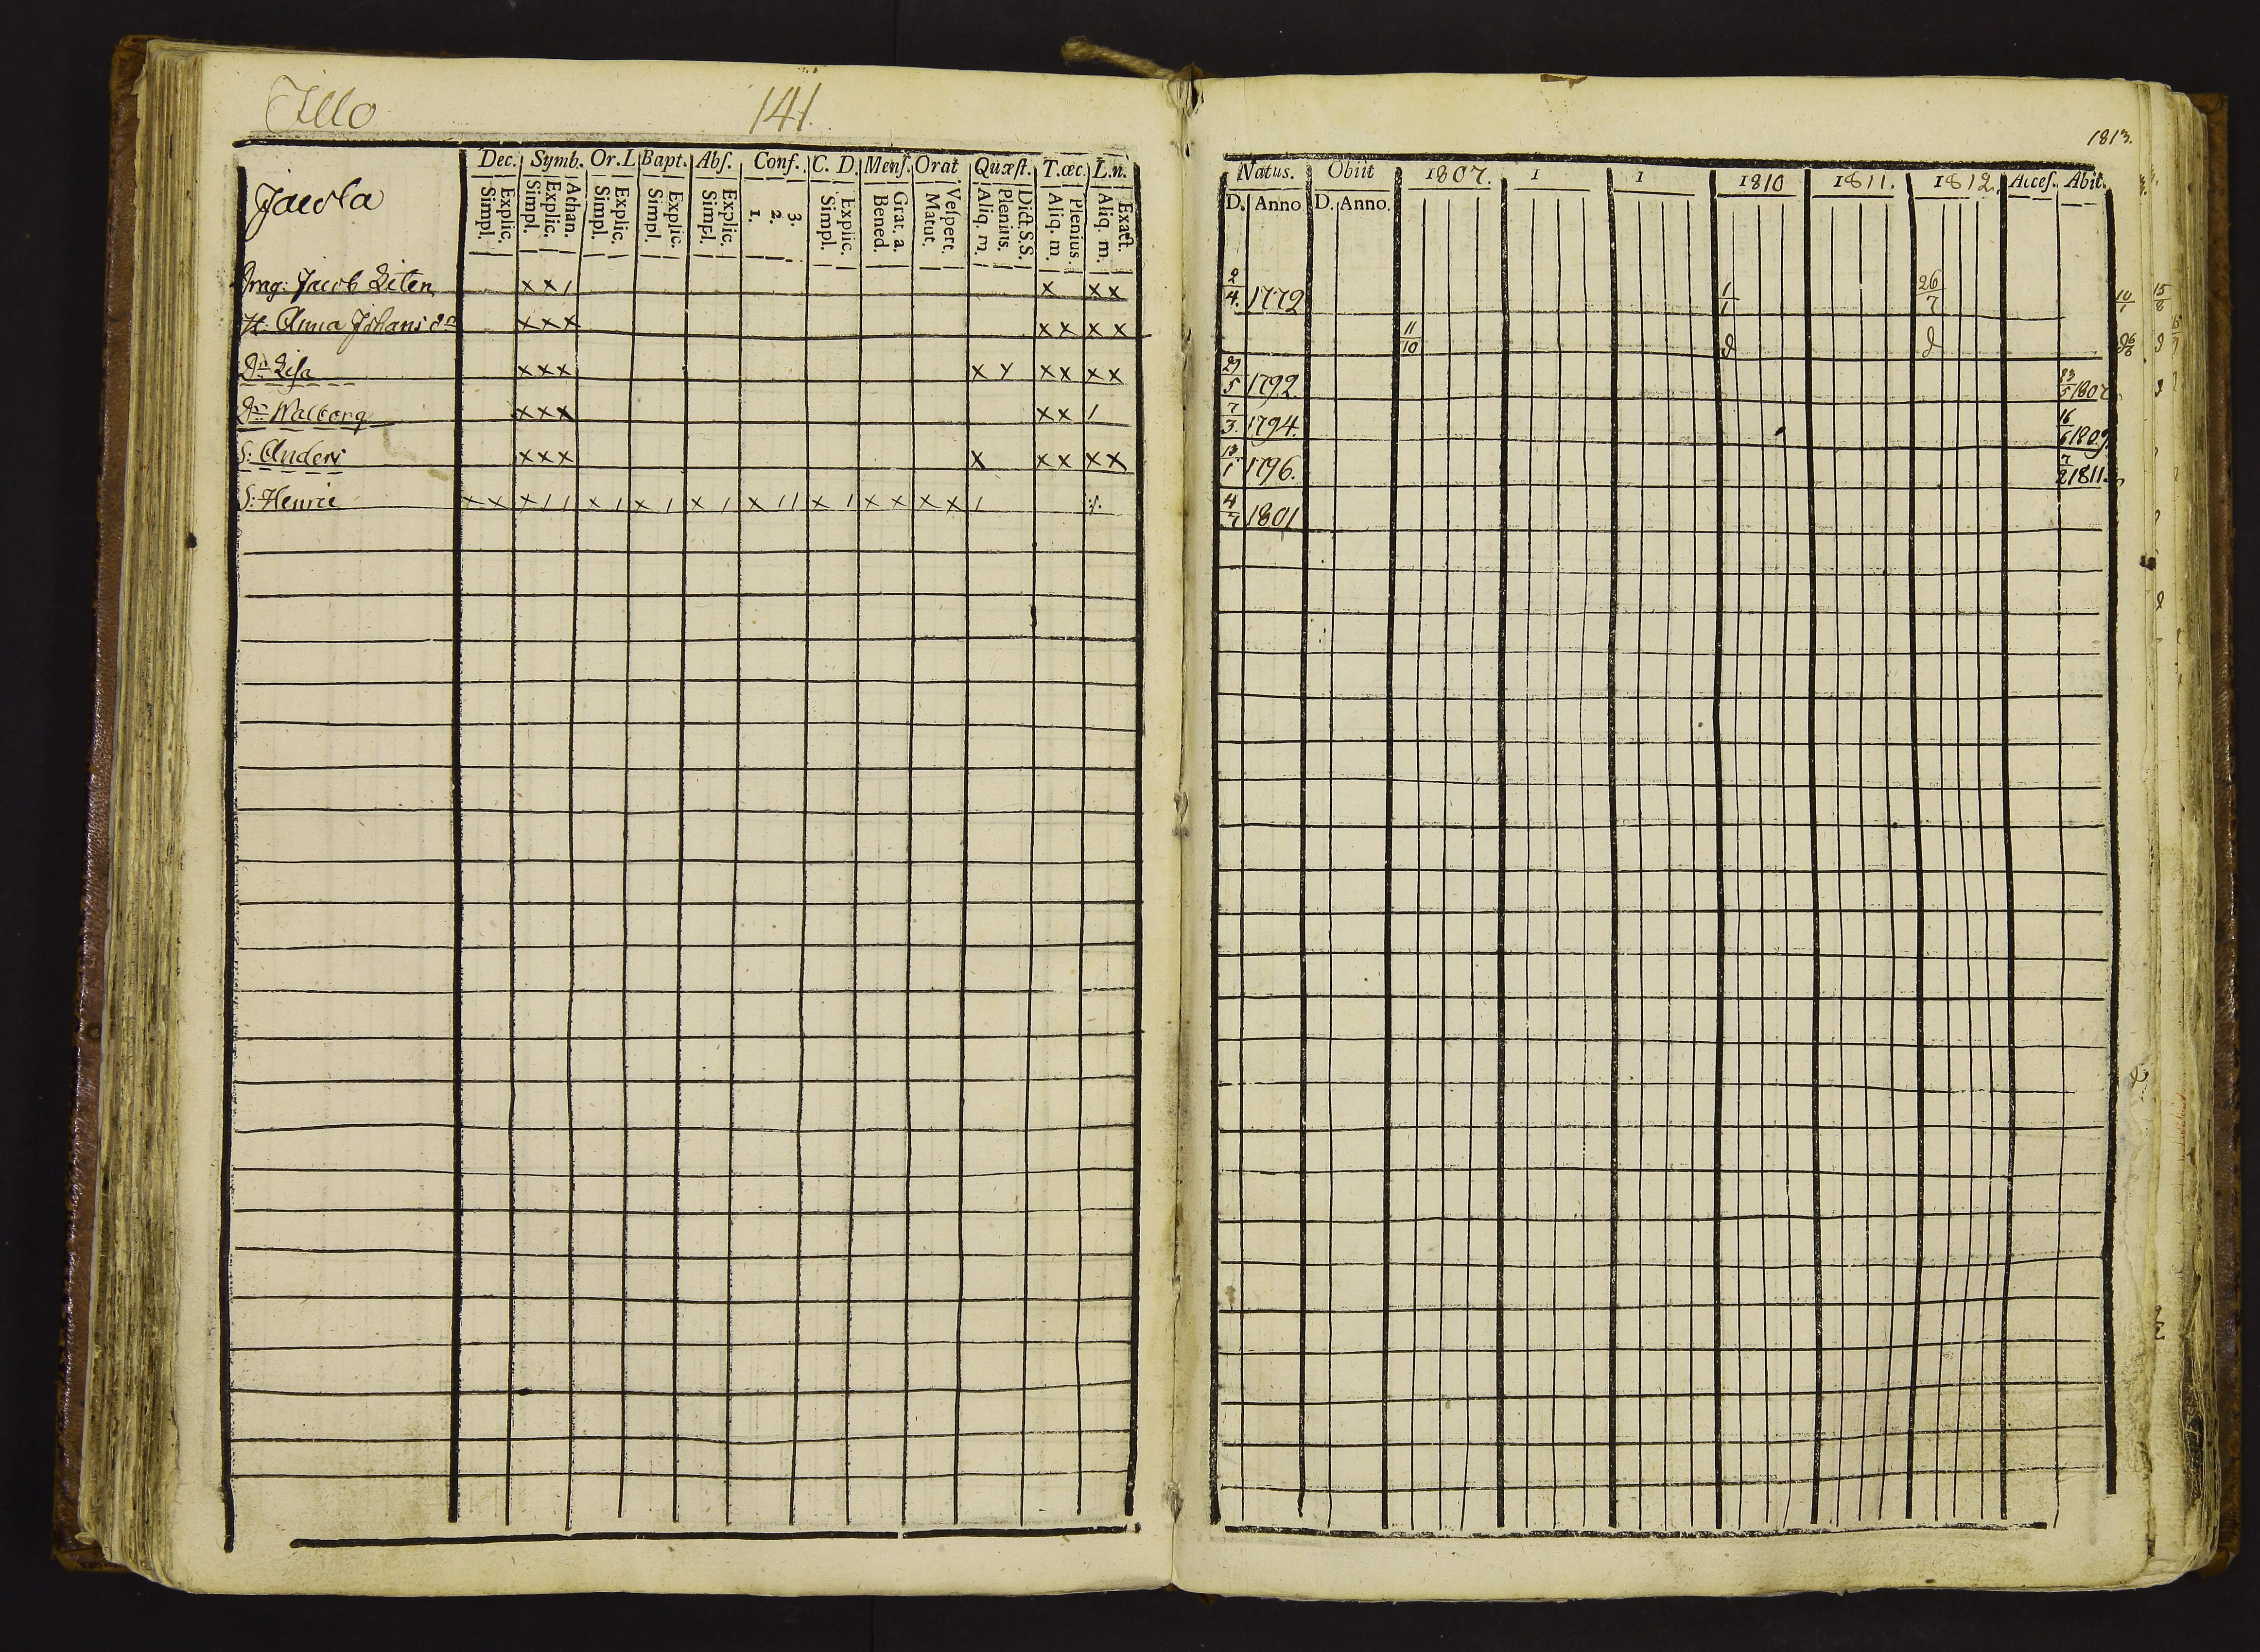 Illo 141
1813.
Dec. Symb. Or. L Bapt. Abſ. Conf. C. D. Menſ. Orat Quæſt. T. œc. L. n.
Jacola
Explic. Simpl. Athan. Explic. Simpl. Explic. Simpl. Explic. Simpl. Explic. Simpl. 3. 2. 1. Explic. Simpl. Grat. a. Bened. Veſpert. Matut. Dict. S. S. Plenius. Aliq. m. Plenius. Aliq. m. Exact. Aliq. m.
Drag: Jacob Liten x x 1 x x x
H. Anna Johansdr x x x x x x x
Dr Lisa x x x x x x x x x
Dr Walborg x x x x x 1
S: Anders x x x x x x x x
S: Henric x x x 1 1 x 1 x 1 x 1 x 1 1 x 1 x x x x 1 ./.
Natus. Obiit 1807. 1 1 1810 1811. 1812. Acceſ. Abit.
D. Anno D. Anno.
2/4. 1772 1/1 26/7 10/1 15/8
11/10
29/5 1792. 23/5 1807
7/3. 1794. 16/6 1809
13/1 1796. 7/2 1811
4/7 1801